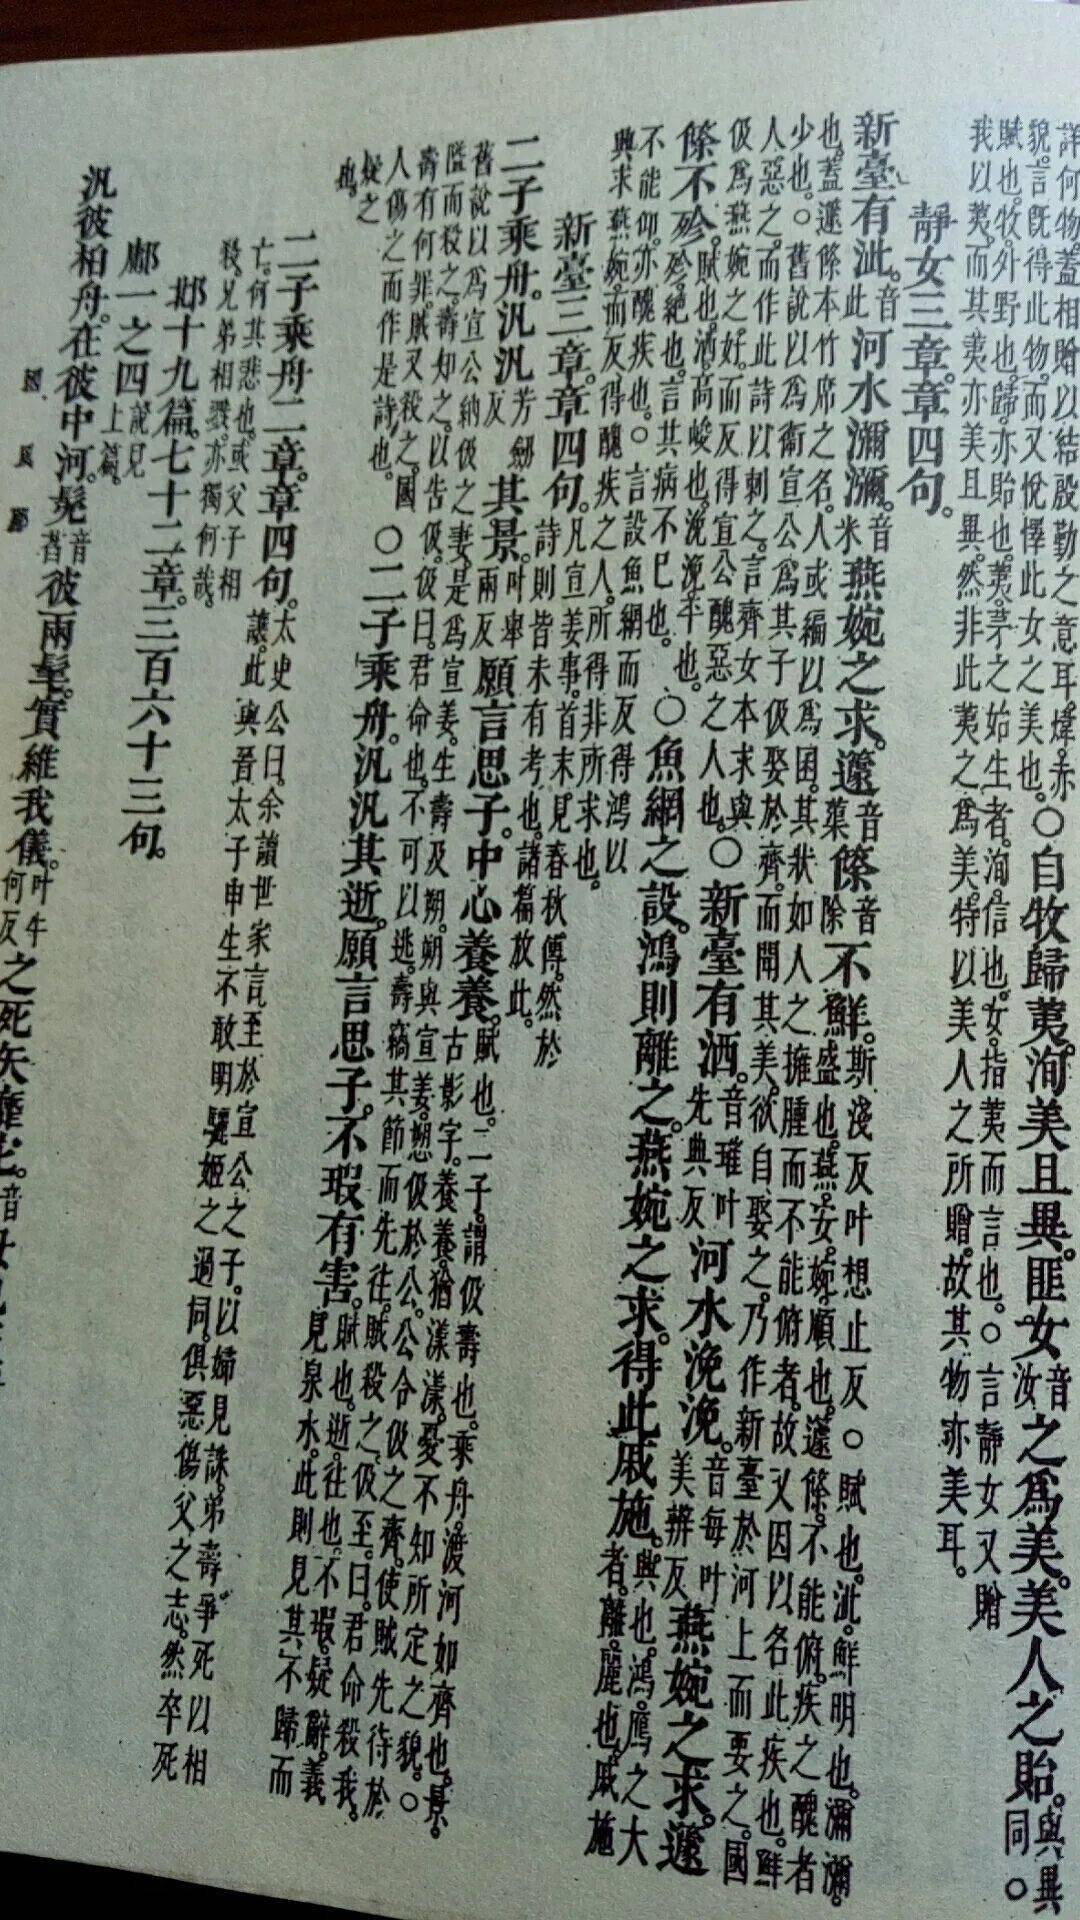 詳何物。蓋相贈以結殷勤之意耳。煒。赤
貌。言既得此物。而又悅懌此女之美也。〇自牧歸荑。洵美且異。匪女音汝之爲美。美人之貽。與異同。〇
賦也。牧。外野也。歸。亦貽也。荑。茅之始生者。洵。信也。女。指荑而言也。〇言靜女又贈
我以荑。而其荑亦美且異。然非此荑之爲美。特以美人之所贈。故其物亦美耳。
靜女三章。章四句。
新臺有泚。音此河水瀰瀰。音米燕婉之求。籧音蕖篨音除不鮮。斯淺反叶想止反〇賦也。泚。鮮明也。瀰瀰。
盛也。燕。安。婉。順也。籧篨。不能俯。疾之醜者
也。蓋籧篨本竹席之名。人或編以爲囷。其狀如人之擁腫而不能俯者。故又因以名此疾也。鮮
少也。〇舊說以爲衛宣公爲其子伋娶於齊。而聞其美。欲自娶之。乃作新臺於河上而要之。國
人惡之。而作此詩以刺之。言齊女本求與
伋爲燕婉之好。而反得宣公醜惡之人也。〇新臺有洒。音璀叶先典反河水浼浼。音每叶美辨反燕婉之求。籧
篨不殄。賦也。洒。高峻也。浼浼。平也。殄。絕也。言其病不已也。〇魚網之設。鴻則離之。燕婉之求。得此戚施。興也。鴻。鴈之大者。離。麗也。戚施
不能仰。亦醜疾也。〇言設魚網而反得鴻。以
興求燕婉。而反得醜疾之人。所得非所求也。
新臺三章。章四句。凡宣姜事。首末見春秋傳。然於詩則皆未有考也。諸篇放此。
二子乘舟。汎汎芳劒反其景。叶舉兩反願言思子。中心養養。賦也。二子。謂伋壽也。乘舟。渡河如齊也。景。古影字。養養。猶漾漾。憂不知所定之貌。〇
舊說以爲宣公納伋之妻。是爲宣姜。生壽及朔。朔與宣姜愬伋於公。公令伋之齊。使賊先待於
隘而殺之。壽知之。以告伋。伋曰。君命也。不可以逃。壽竊其節而先往。賊殺之。伋至。曰。君命殺我。
壽有何罪。賊又殺之。國
人傷之而作是詩也。〇二子乘舟。汎汎其逝。願言思子。不瑕有害。賦也。逝。往也。不瑕。疑辭。義見泉水。此則見其不歸而
疑之
也。
二子乘舟二章。章四句。太史公曰。余讀世家言。至於宣公之子。以婦見誅。弟壽爭死以相
讓。此與晉太子申生不敢明驪姬之過同。俱惡傷父之志。然卒死
亡。何其悲也。或父子相
殺。兄弟相戮。亦獨何哉。
邶十九篇。七十二章。三百六十三句。
鄘一之四說見上篇。
汎彼柏舟。在彼中河。髧音萏彼兩髦。實維我儀。叶牛何反之死矢靡它。音
國風 鄘